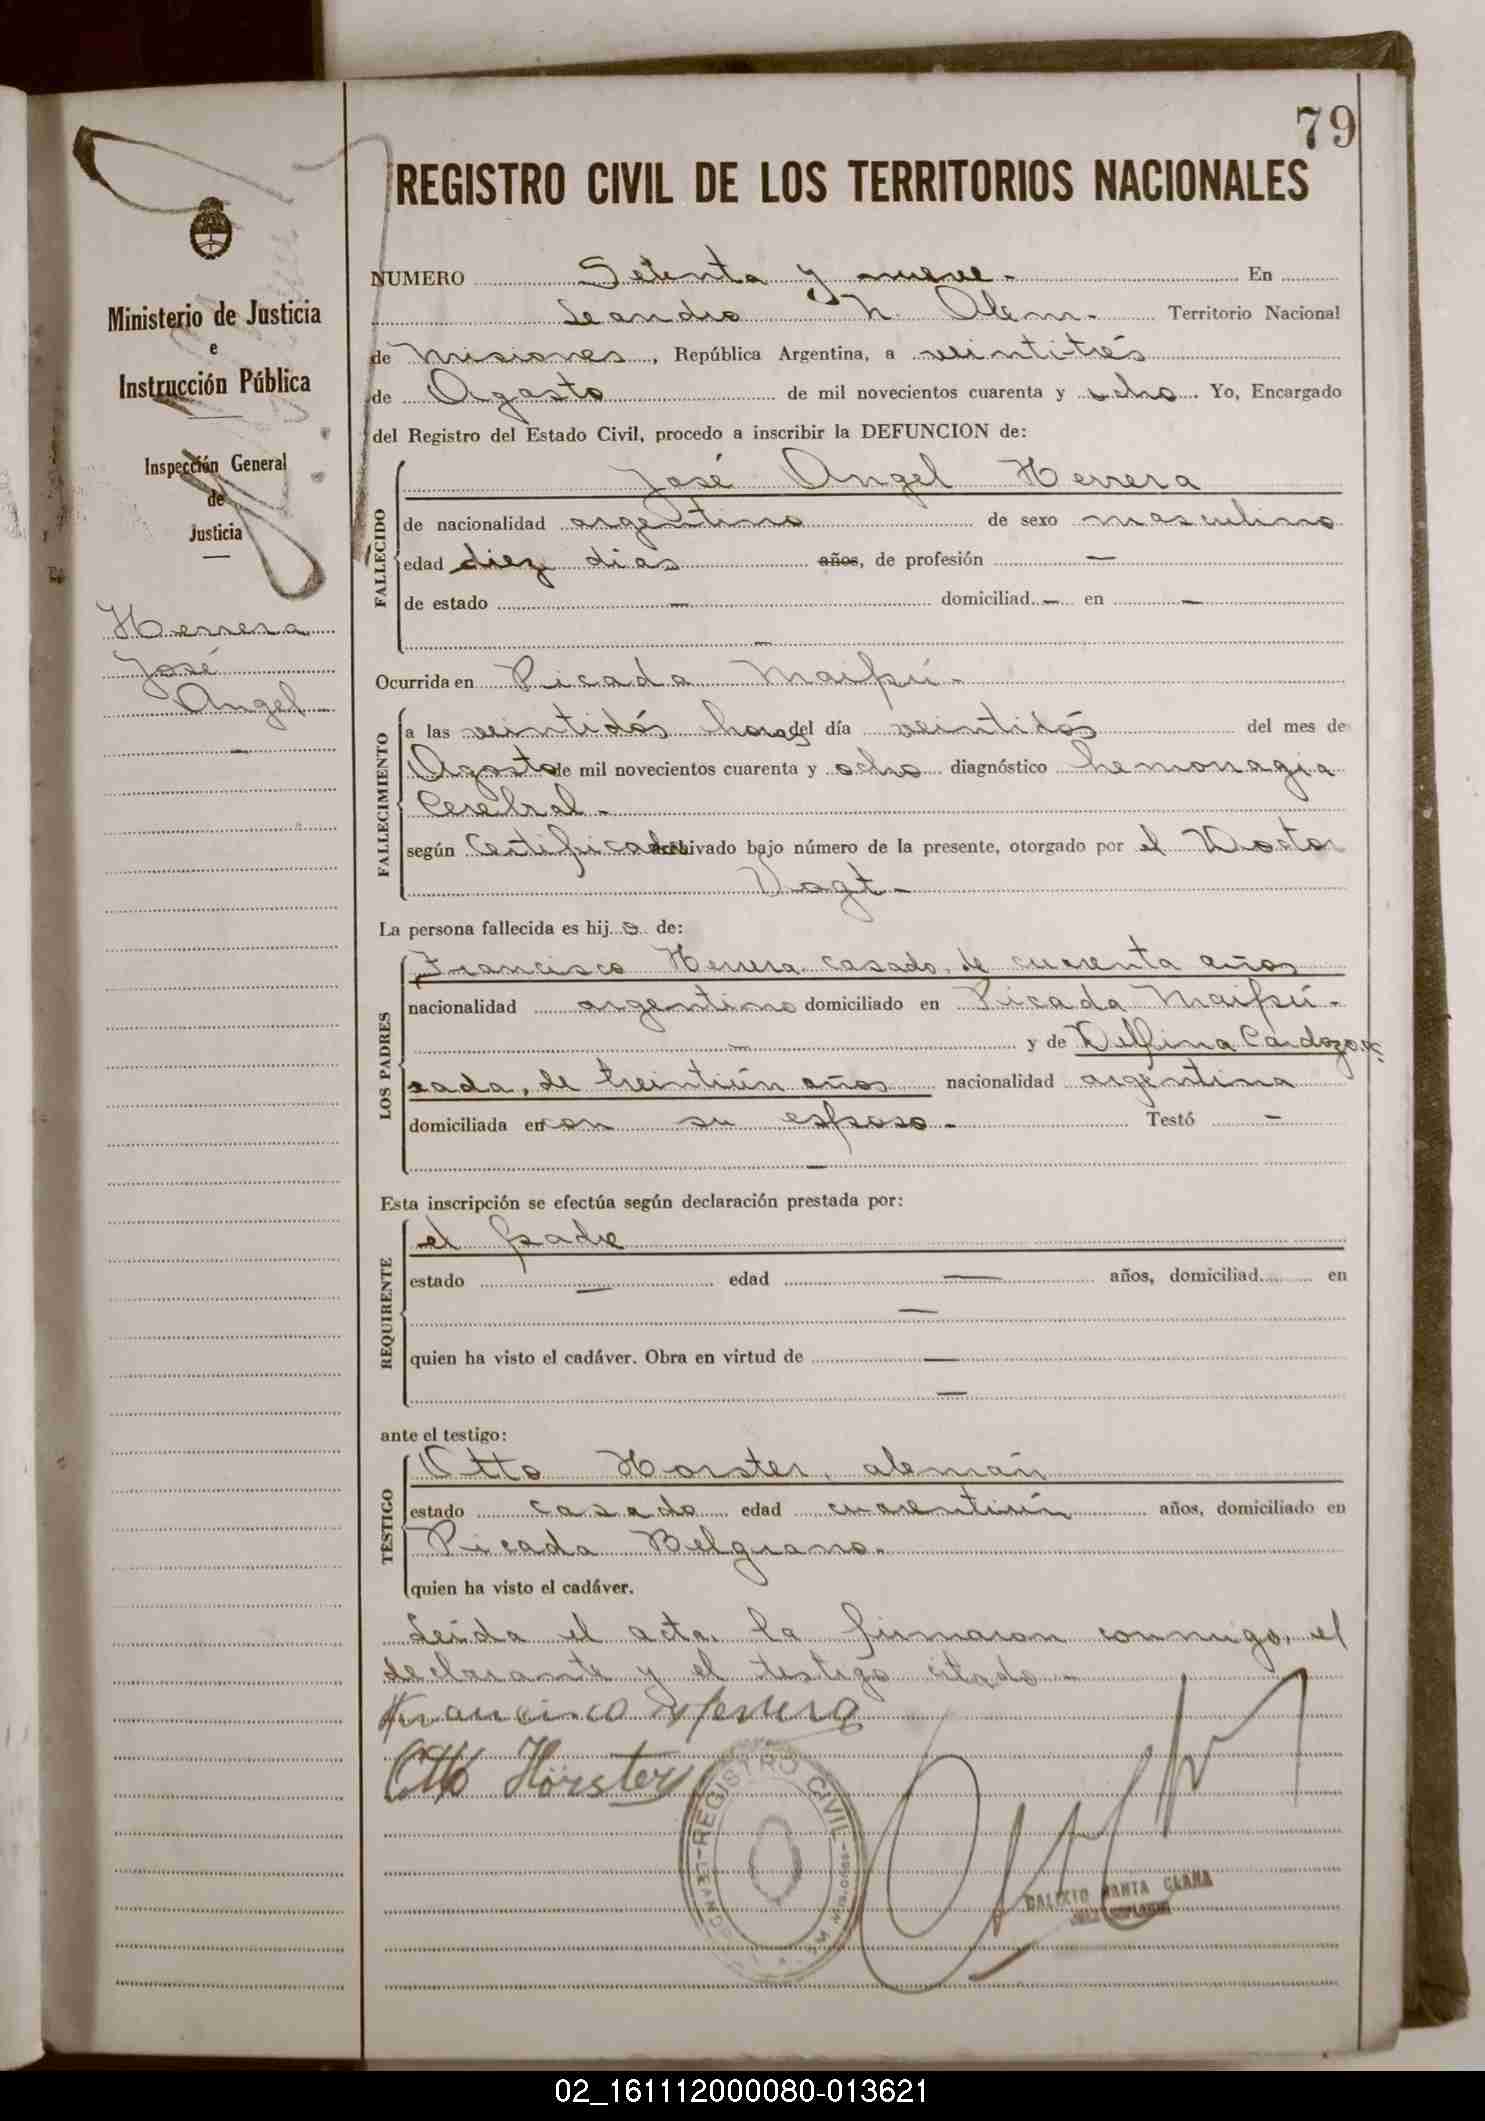 79
REGISTRO CIVIL DE LOS TERRITORIOS NACIONALES
Ministerio de Justicia
e
Instrucción Pública
Inspección General
de
Justicia
Herrera
José
Angel
NUMERO Setenta y nueve.- En
Leandro N. Alem.- Territorio Nacional
de Misiones, República Argentina, a veintitrés
de Agosto de mil novecientos cuarenta y ocho. Yo, Encargado
del Registro del Estado Civil, procedo a inscribir la DEFUNCION de:
FALLECIDO
José Angel Herrera
de nacionalidad argentino de sexo masculino
edad diez dias años, de profesión —
de estado — domiciliad — en —
—
Ocurrida en Picada Maipú.-
FALLECIMIENTO
a las veintidós horas del día veintidós del mes de
Agosto de mil novecientos cuarenta y ocho diagnóstico hemorragia
Cerebral.-
según Certificado archivado bajo número de la presente, otorgado por el Doctor
Vogt.-
La persona fallecida es hijo de:
LOS PADRES
Francisco Herrera casado, de cuarenta años
nacionalidad argentino domiciliado en Picada Maipú.-
— y de Delfina Cardozo, ca
sada, de treintiún años nacionalidad argentina
domiciliada en con su esposo.- Testó —
—
Esta inscripción se efectúa según declaración prestada por:
REQUIRENTE
el padre
estado — edad — años, domiciliad en
—
quien ha visto el cadáver. Obra en virtud de —
—
ante el testigo:
TESTIGO
Otto Horster, alemán
estado casado edad cuarentiún años, domiciliado en
Picada Belgrano.
quien ha visto el cadáver.
Leída el acta, la firmaron conmigo, el
declarante y el testigo citado.-
Francisco Herrera
Otto Hörster
REGISTRO CIVIL
CALIXTO SANTA CLARA
02_161112000080-013621